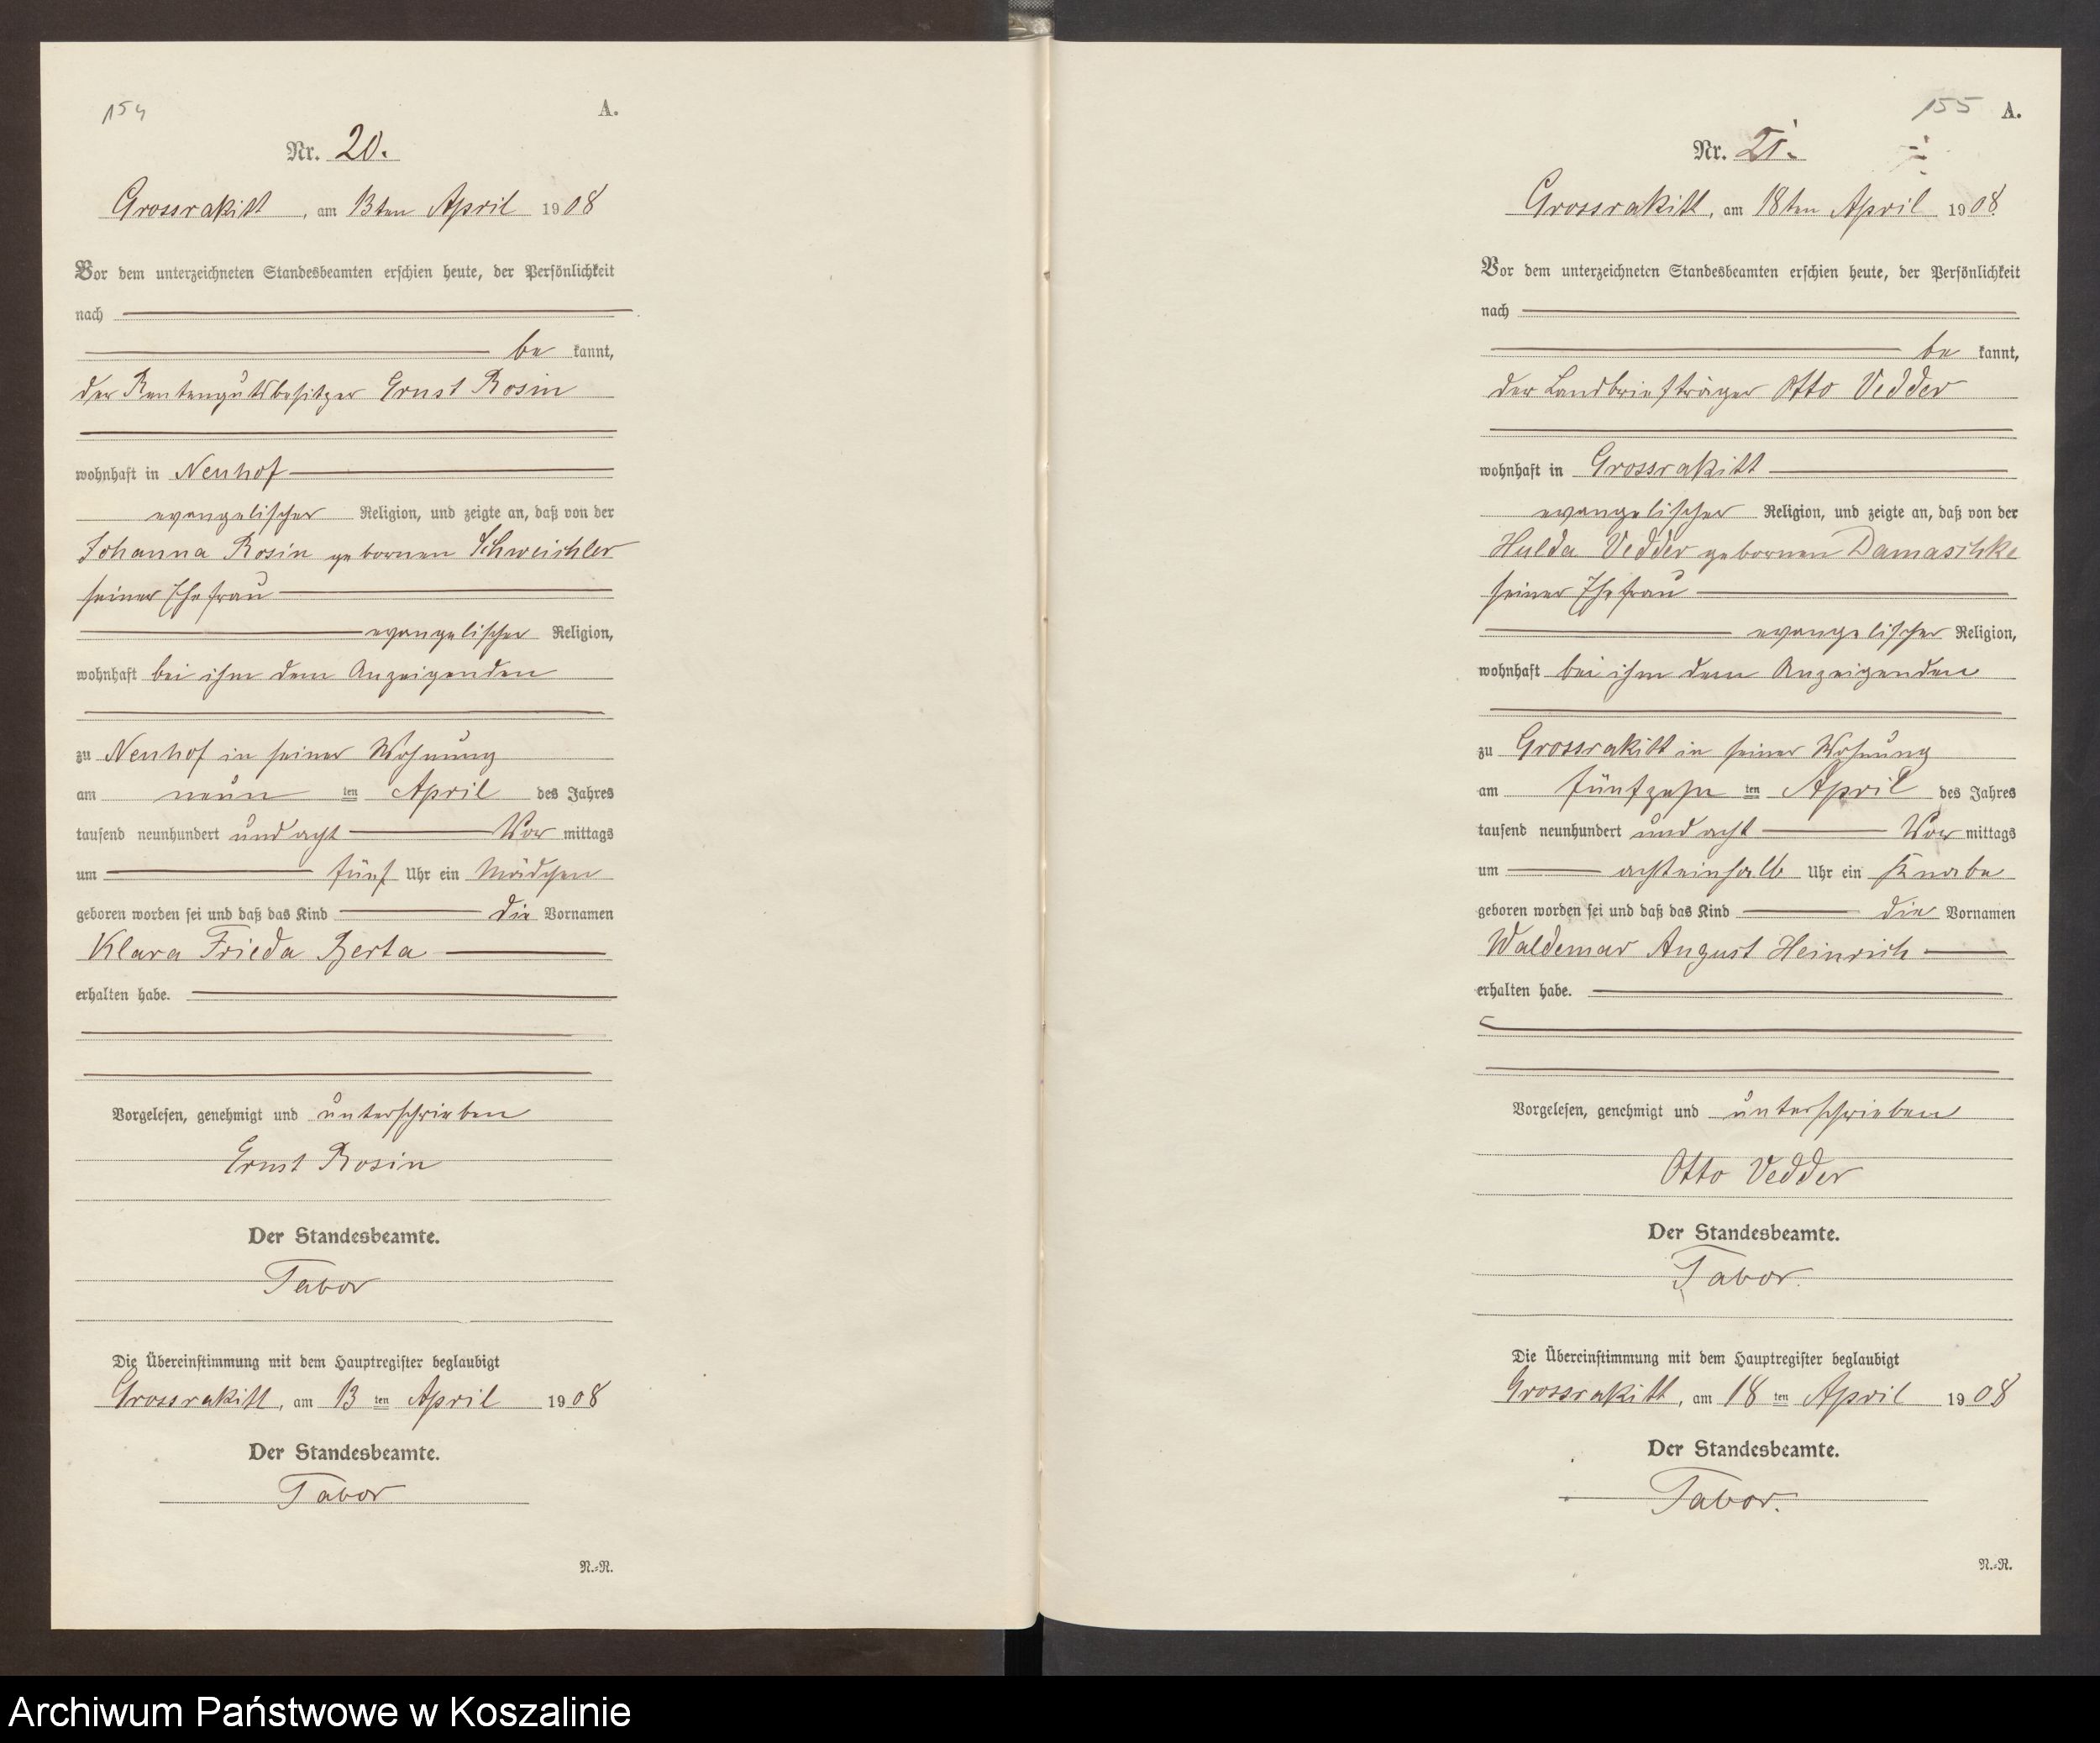 154
A.
Nr. 20.
Grossrakitt, am 13ten April 1908
Vor dem unterzeichneten Standesbeamten erschien heute, der Persönlichkeit
nach
be kannt,
der Rentengutsbesitzer Ernst Rosin
wohnhaft in Neuhof
evangelischer Religion, und zeigte an, daß von der
Johanna Rosin gebornen Schweichler
seiner Ehefrau
evangelischer Religion,
wohnhaft bei ihm dem Anzeigenden
zu Neuhof in seiner Wohnung
am neun ten April des Jahres
tausend neunhundert und acht Vor mittags
um fünf Uhr ein Mädchen
geboren worden sei und daß das Kind die Vornamen
Klara Frieda Berta
erhalten habe.
Vorgelesen, genehmigt und unterschrieben
Ernst Rosin
Der Standesbeamte.
Tabor
Die Übereinstimmung mit dem Hauptregister beglaubigt
Grossrakitt, am 13 ten April 1908
Der Standesbeamte.
Tabor
N.=R.
155
A.
Nr. 21.
Grossrakitt, am 18ten April 1908
Vor dem unterzeichneten Standesbeamten erschien heute, der Persönlichkeit
nach
be kannt,
der Landbriefträger Otto Vedder
wohnhaft in Grossrakitt
evangelischer Religion, und zeigte an, daß von der
Hulda Vedder gebornen Damaschke
seiner Ehefrau
evangelischer Religion,
wohnhaft bei ihm dem Anzeigenden
zu Grossrakitt in seiner Wohnung
am fünfzehn ten April des Jahres
tausend neunhundert und acht Vor mittags
um achteinhalb Uhr ein Knabe
geboren worden sei und daß das Kind die Vornamen
Waldemar August Heinrich
erhalten habe.
Vorgelesen, genehmigt und unterschrieben
Otto Vedder
Der Standesbeamte.
Tabor.
Die Übereinstimmung mit dem Hauptregister beglaubigt
Grossrakitt, am 18 ten April 1908
Der Standesbeamte.
Tabor.
N.=R.
Archiwum Państwowe w Koszalinie